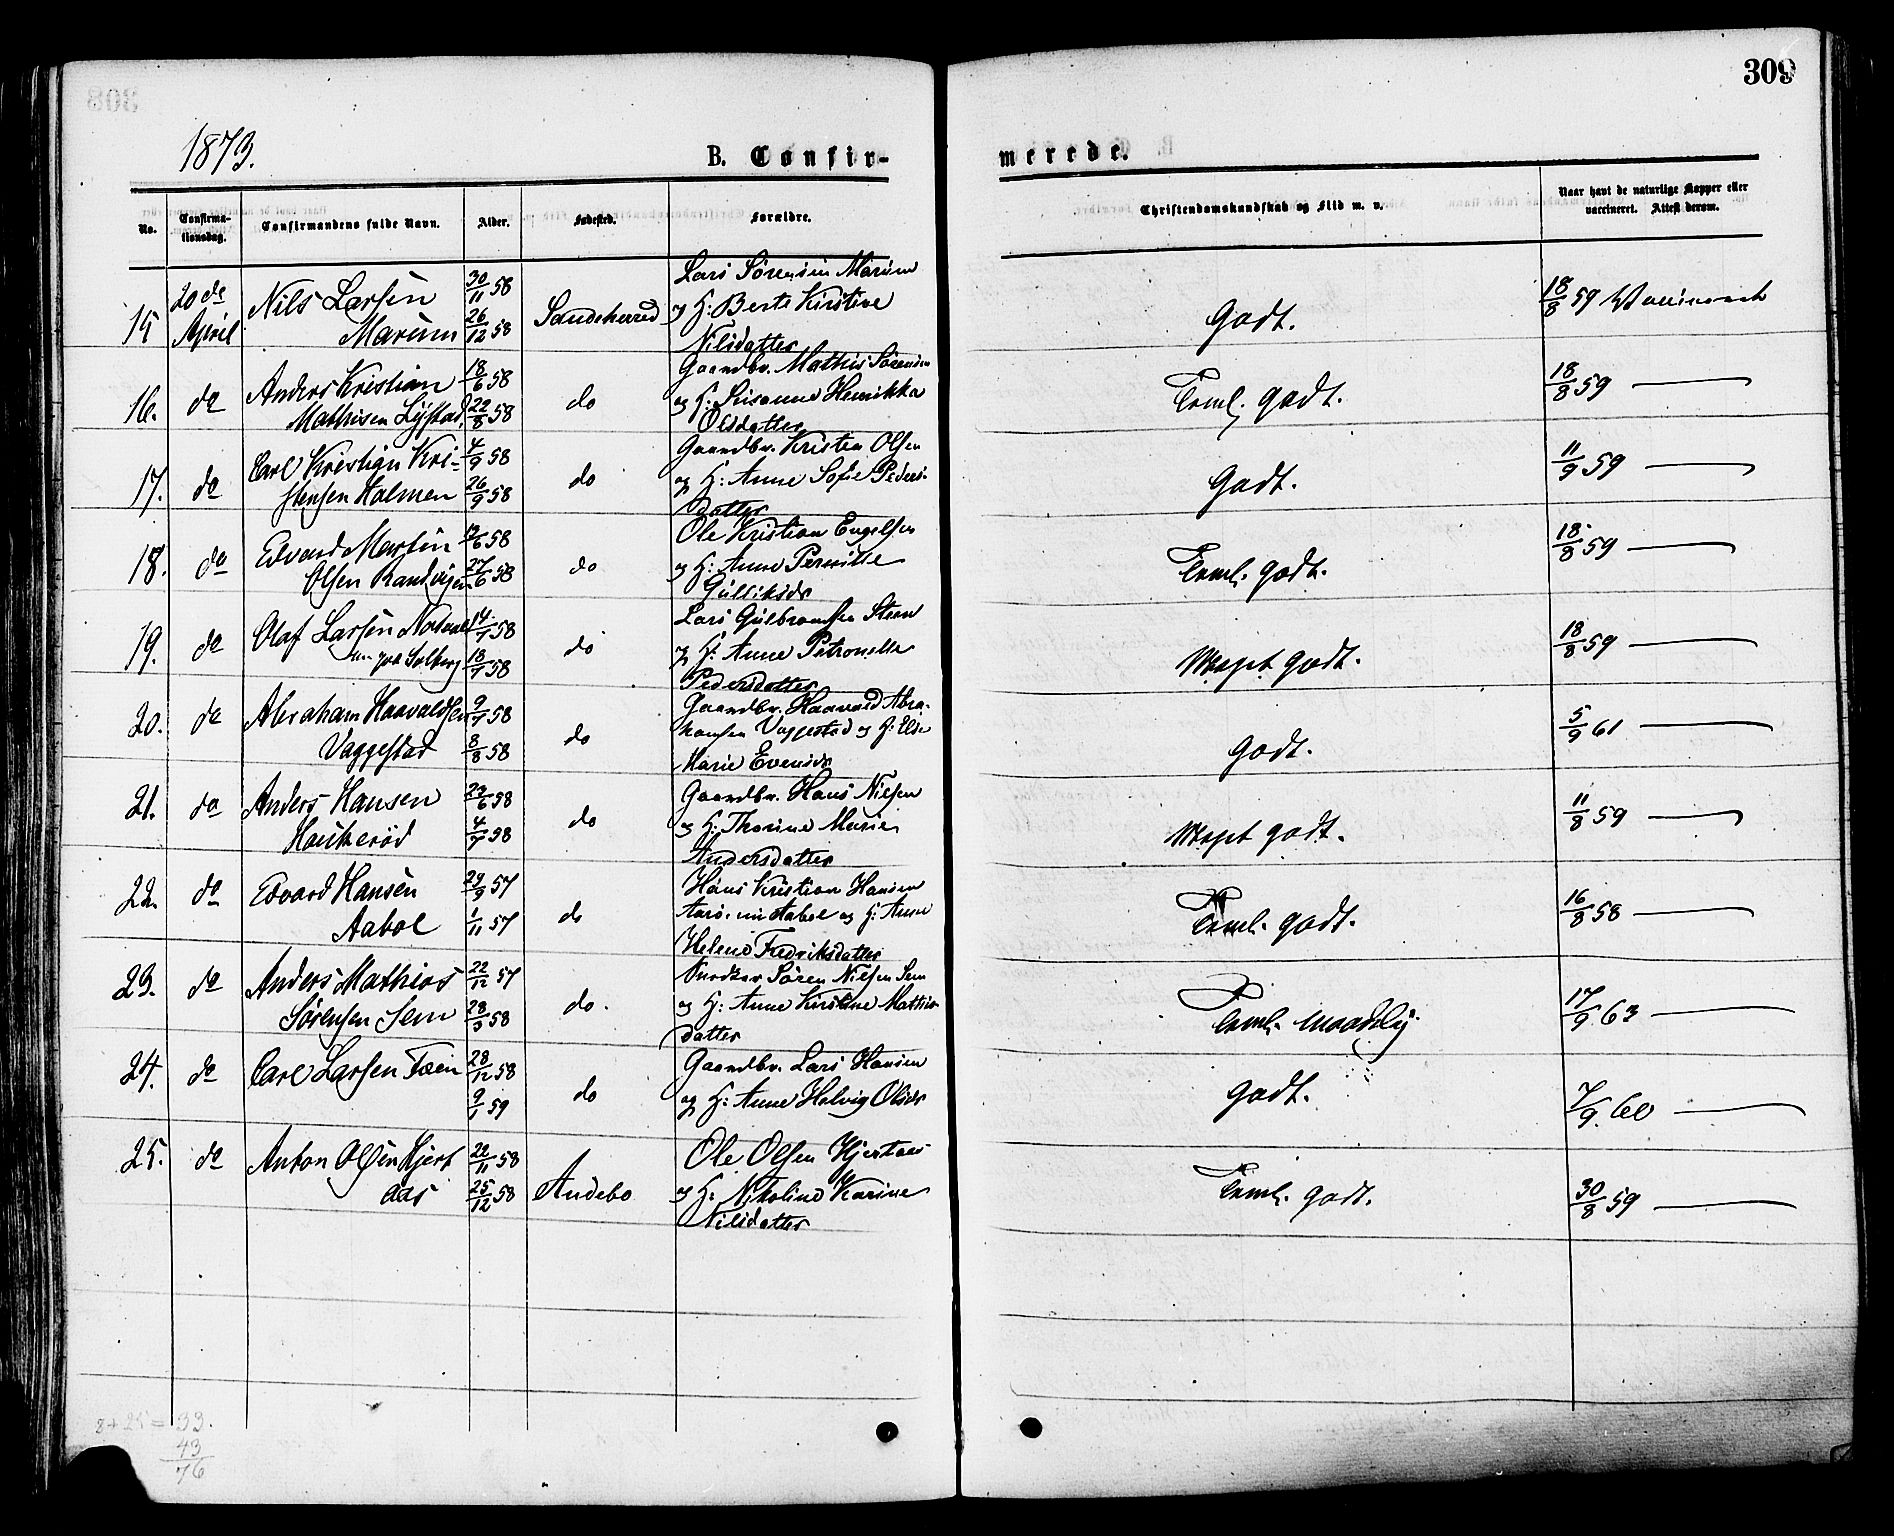 309
1873.
B. Confir-
merede.
No.
Confirma-
tionsdag.
Confirmandens fulde Navn.
Alder.
Fødested.
Forældre.
Christendomskundskab og Flid m. v.
Naar havt de naturlige Kopper eller
vaccineret. Attest derom.
15 20de April Nils Larsen Marum 30/11 58 26/12 58 Sandeherred Lars Sørensen Marum
og H: Berte Kirstine
Nilsdatter
Godt. 18/8 59
16. do Anders Kristian
Mathisen Lystad 18/6 58 22/8 58 do Gaardbr. Mathis Sørensen
og H: Susanne Henrikka
Olsdatter
Teml. godt. 18/8 59
17. do Carl Kristian Kri-
stensen Holmen 4/9 58 26/9 58 do Gaardbr. Kristen Olsen
og H: Anne Sofie Peders-
datter
Godt. 11/9 59
18. do Edvard Martin
Olsen Randvigen 58 27/6 58 do Ole Kristian Engelsen
og H: Anne Pernille
Gulliksdr
Teml. godt. 18/8 59
19. do Olaf Larsen
paa Solberg 14/7 58 18/7 58 do Lars Gulbrandsen Steen
og H: Anne Petronelle
Pedersdatter
Meget godt. 18/8 59
20. do Abraham Haavaldsen
Vaggestad 9/7 58 8/8 58 do Gaardbr. Haavald Abra-
hamsen Vaggestad og H: Else
Marie Evensdr
Godt. 5/9 61
21. do Anders Hansen
Haukerød 23/6 58 4/7 58 do Gaardbr. Hans Nilsen
og H: Thorine Marie
Andersdatter
Meget godt. 11/8 59
22. do Edvard Hansen
Aabol 29/9 57 1/11 57 do Hans Kristian Hansen
Aabol og H: Anne
Helene Fredriksdatter
Teml. godt. 16/8 58
23. do Anders Mathias
Sørensen Sem 22/12 57 28/3 58 do. Søren Nilsen Sem
og H: Anne Kirstine Mathis
datter
Teml. maadelig. 17/9 63
24. do Carl Larsen Foen 28/12 58 9/1 59 do Gaardbr. Lars Hansen
og H: Anne Helvig Olsdr
Godt. 7/9 60
25. do Anton Olsen Hjert
aas 22/11 58 25/12 58 Andebo Ole Olsen Hjertaas
og H: Nikoline Karine
Nilsdatter
Teml. godt. 30/8 59
8 + 25 = 33.
43
76